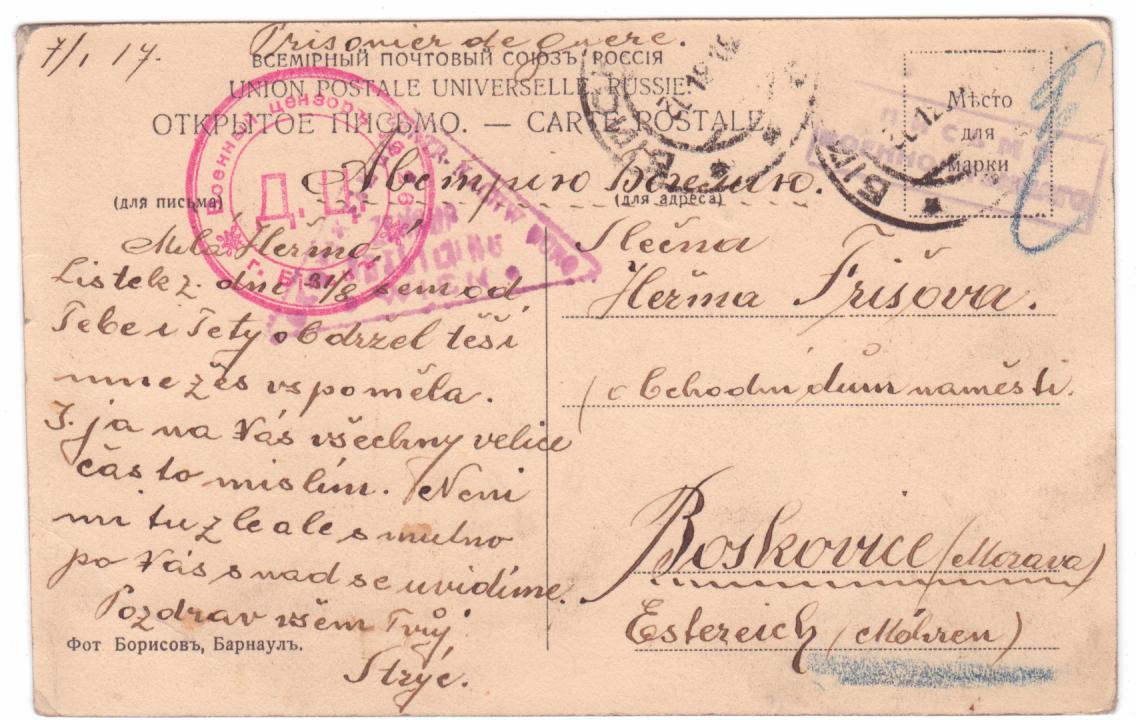 7/1 17.
Prisonier de guere.
ВСЕМІРНЫЙ ПОЧТОВЫЙ СОЮЗЪ. РОССІЯ
UNION POSTALE UNIVERSELLE. RUSSIE.
ОТКРЫТОЕ ПИСЬМО. — CARTE POSTALE
Мѣсто
для
марки
Австрию Богемию.
(для письма)
(для адреса)
Военный цензоръ
Д. Ц.
Milá Heřmo,
Lístek z dne 31/8 sem od
Tebe i Tety obdržel těší
mne žes vspoměla.
I. já na Vás všechny velice
často mislím. Neni
mi tu zle ale smutno
po Vás snad se uvidíme.
Pozdrav všem Tvůj
Strýc.
Slečna
Heřma Frišova.
obchodni dům naměsti.
Boskovice (Morava)
Estereich (Möhren)
Фот Борисовъ, Барнаулъ.